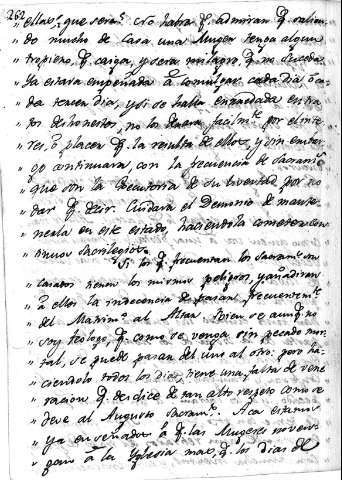 262
" ellas, que sera? No habra q. admiran q. salien
" do mucho de Casa una Muger tenga algun
" tropiezo, q. caiga, y sera milagro q. no suceda.
" Ya estara empeñada à comulgar cada dia, ò ca
" da tercer dia, y si se halla enredada en tra
" tos deshonestos, no los dexa facilmte. por el inte
" res, ò placer q. la resulta de ellos, y sin embar
" go continuara con la frecuencia de Sacramtos.
" que son la executoria de su virtud por no
" dar q. decir. Cuidara el Demonio de mante
" nerla en este estado, haciendola cometer con
" tinuos sacrilegios.
" Si los q. frecuentan los Sacramtos. son
" casados tienen los mismos peligros, y añadiran
" à ellos la indecencia de pasar frecuentemte.
" del Matrimo. al Altar. Bien se aunq. no
" soy teologo, q. como se venga sin pecado mor
" tal, se puede pasar del uno al otro: pero ha
" ciendolo todos los dias, tiene una falta de vene
" racion q. desdice de tan alto respeto como se
" deve al Augusto Sacramto. Aca estamos
" ya enseñados à q. las Mugeres no ven
" gan à la Yglesia mas q. los dias de